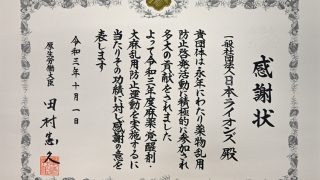 感謝状
一般社団法人日本ライオンズ 殿
貴団体は永年にわたり薬物乱用
防止啓発活動に積極的に参加され
多大の貢献をされました
よって令和三年度麻薬・覚醒剤・
大麻乱用防止運動を実施するに
当たりその功績に対し感謝の意を
表します
令和三年十月一日
厚生労働大臣 田村憲久